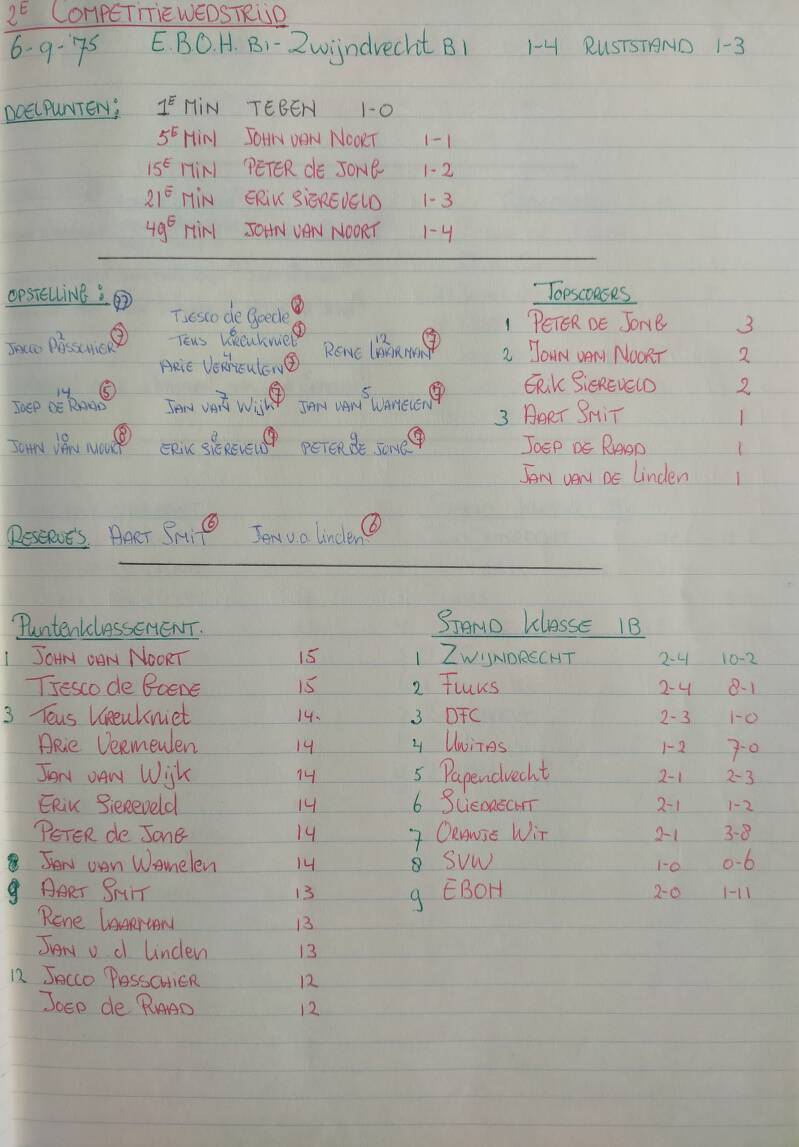 2E COMPETITIEWEDSTRIJD
6-9-'75 E.B.O.H. B1 - Zwijndrecht B1 1-4 RUSTSTAND 1-3
DOELPUNTEN: 1E MIN TEGEN 1-0
5E MIN JOHN VAN NOORT 1-1
15E MIN PETER de JONG 1-2
21E MIN ERIK SIEREVELD 1-3
49E MIN JOHN VAN NOORT 1-4
OPSTELLING:
1
TJESCO de Goede 8
2 6 12
JACCO PASSCHIER 7 TEUS KREUKNIET RENE LAARMAN 7
4
ARIE VERMEULEN 7
14 7 5
JOEP DE RAAD 5 JAN VAN WIJK 7 JAN VAN WAMELEN
10 8 9
JOHN VAN NOORT 8 ERIK SIEREVELD PETER DE JONG
RESERVE'S. AART SMIT 6 JAN v.d. Linden 6
TOPSCORERS
1 PETER DE JONG 3
2 JOHN VAN NOORT 2
ERIK SIEREVELD 2
3 AART SMIT 1
JOEP DE RAAD 1
JAN VAN DE Linden 1
PuntenKLASSEMENT.
1 JOHN VAN NOORT 15
TJESCO de GOEDE 15
3 Teus Kreukniet 14.
ARIE Vermeulen 14
JAN VAN Wijk 14
ERIK Siereveld 14
PETER de JONG 14
8 JAN van Wamelen 14
9 AART SMIT 13
Rene LAARMAN 13
JAN v. d Linden 13
12 JACCO PASSCHIER 12
JOEP de RAAD 12
STAND KLASSE 1B
1 ZWIJNDRECHT 2-4 10-2
2 Fluks 2-4 8-1
3 DFC 2-3 1-0
4 UNITAS 1-2 7-0
5 Papendrecht 2-1 2-3
6 SLIEDRECHT 2-1 1-2
7 ORANJE WIT 2-1 3-8
8 SVW 1-0 0-6
9 EBOH 2-0 1-11